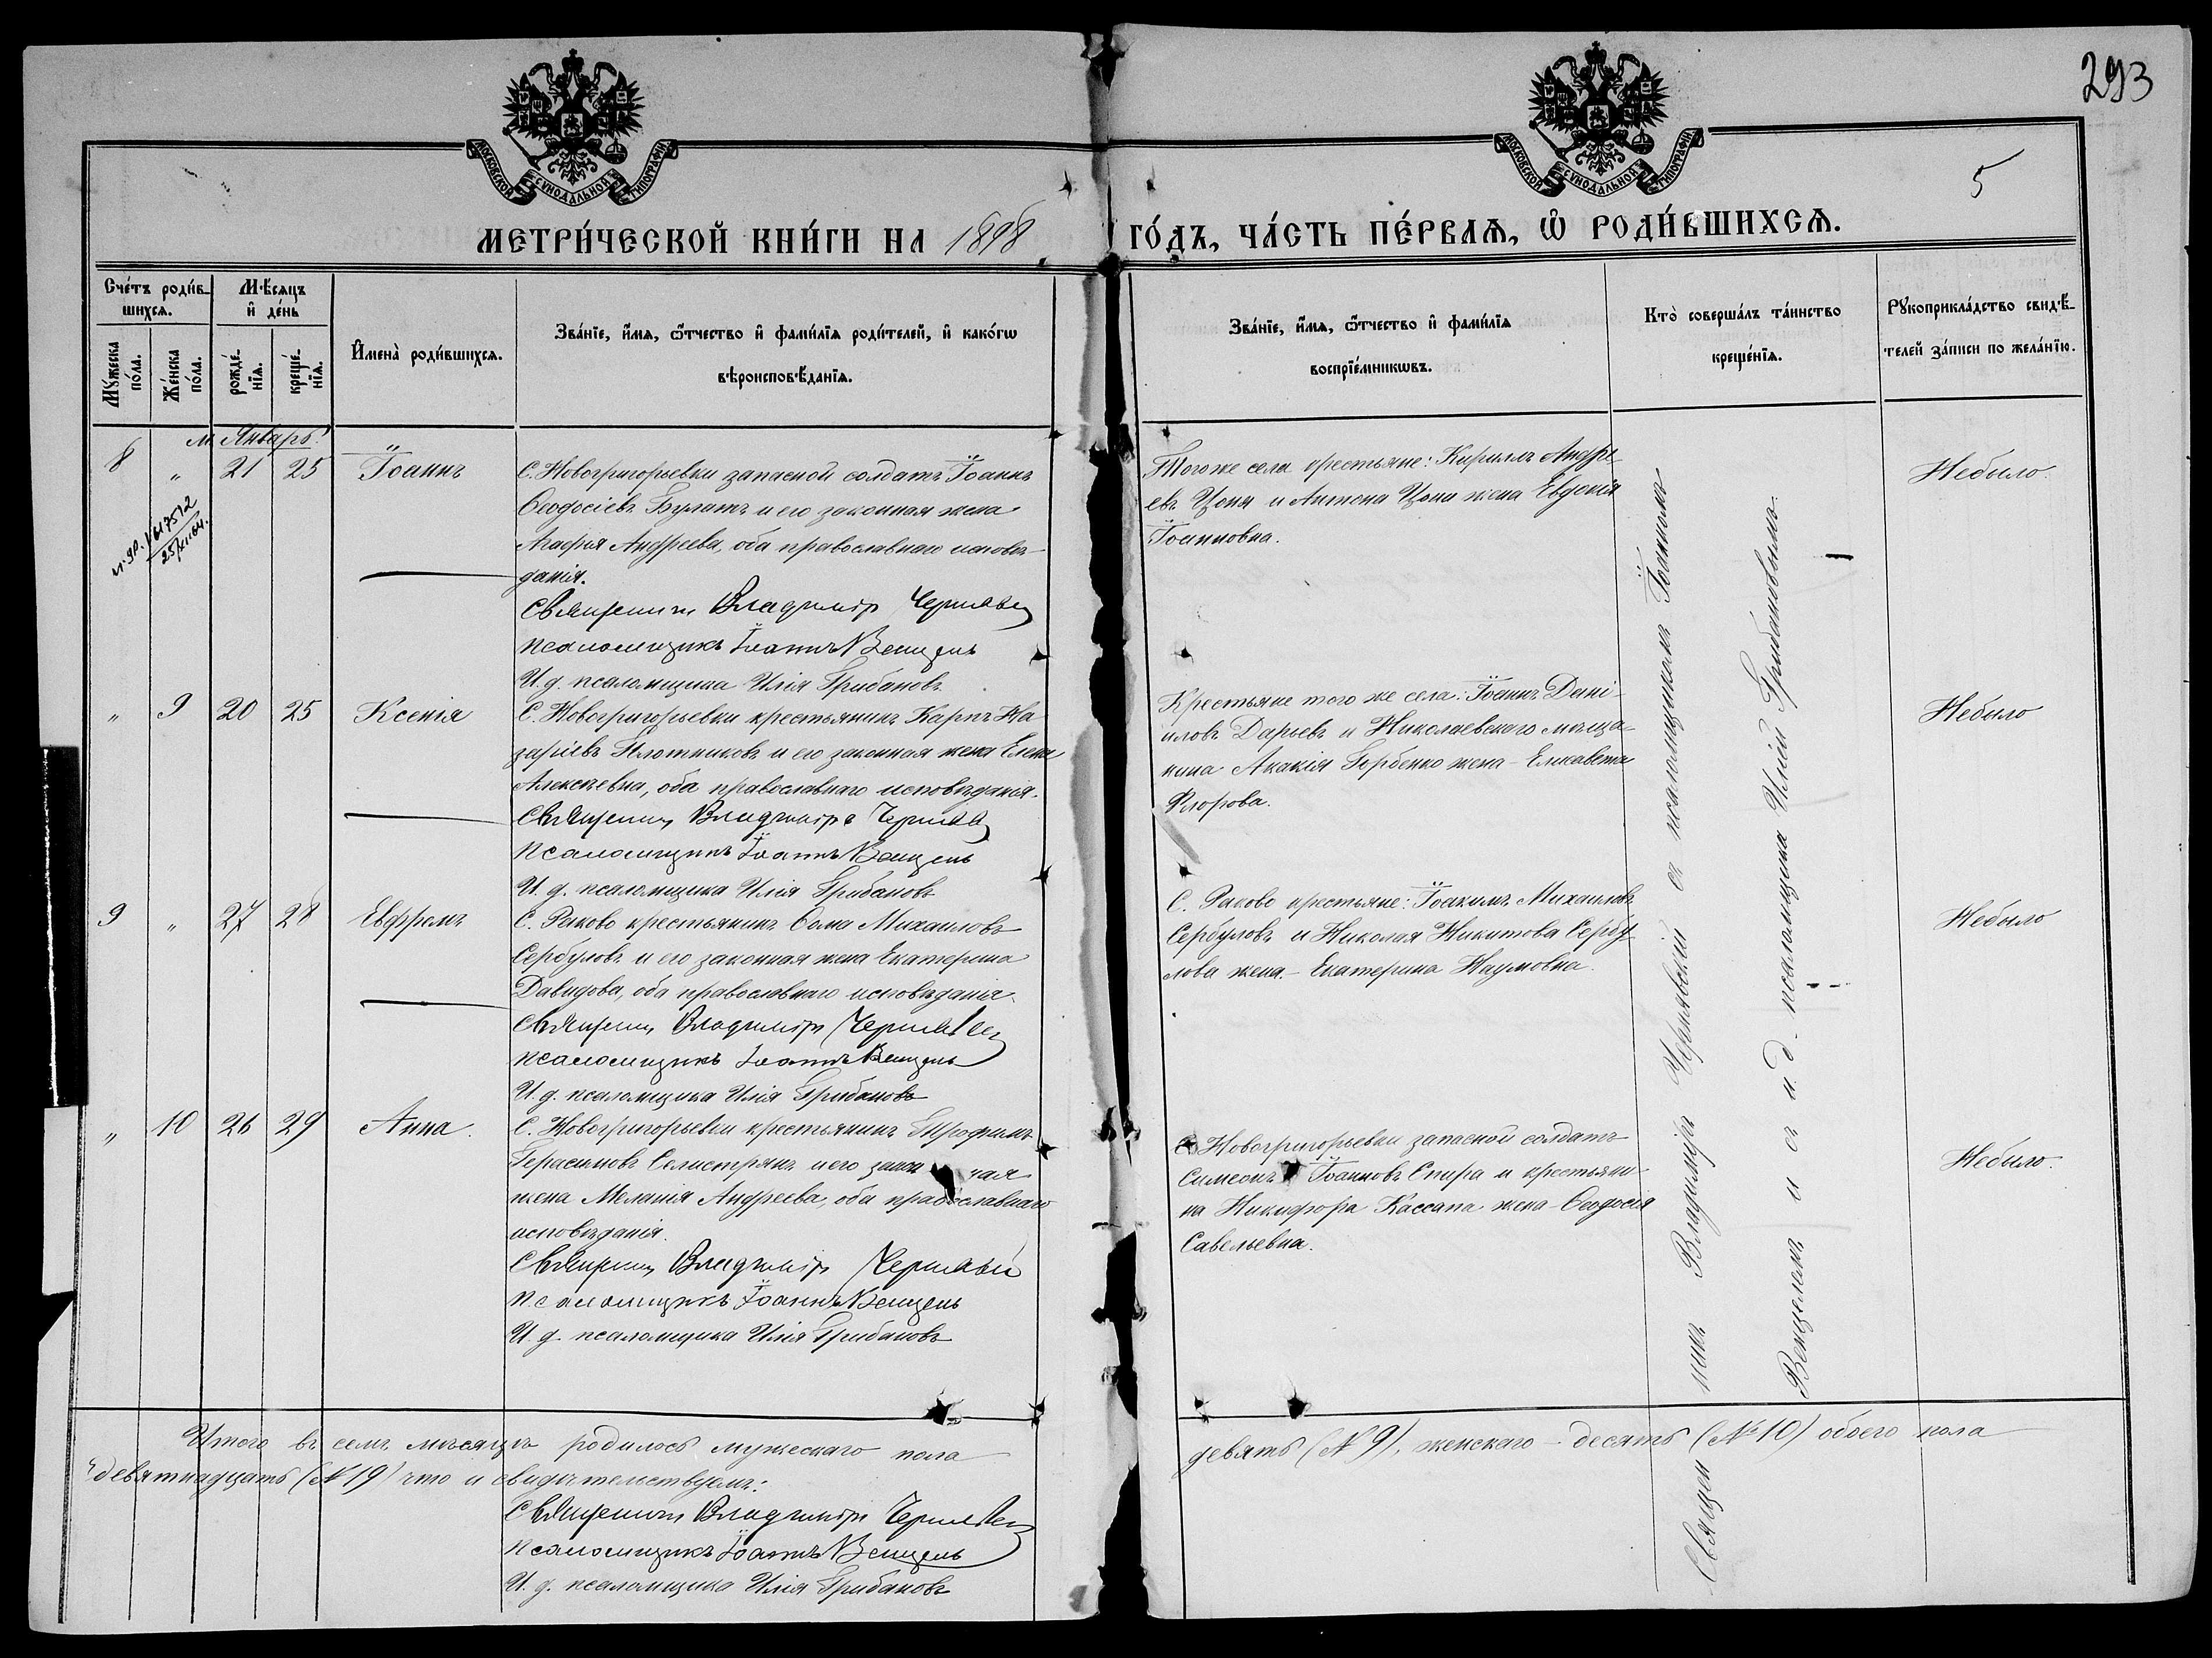 293
5
МОСКОВСКОЙ СѴНОДАЛЬНОЙ ТИПОГРАФІИ
МОСКОВСКОЙ СѴНОДАЛЬНОЙ ТИПОГРАФІИ
МЕТРИ́ЧЕСКОЙ КНИ́ГИ НА 1898 ГО́ДЪ, ЧА́СТЬ ПЕ́РВАѦ, Ѽ РОДИ́ВШИХСѦ.
Сче́тъ роди́вшихсѧ.
Мꙋжеска по́ла.
Же́нска по́ла.
Мѣ́сѧцъ и҆ де́нь
рожде́нїѧ.
креще́нїѧ.
И҆мена̀ роди́вшихсѧ.
Зва́нїе, и҆́мѧ, ѻ҆́тчество и҆ фами́лїѧ роди́телей, и҆ како́гѡ
вѣроисповѣ́данїѧ.
Зва́нїе, и҆́мѧ, ѻ҆́тчество и҆ фами́лїѧ
воспрїе́мникѡвъ.
Кто̀ соверша́лъ та́инство
креще́нїѧ.
Рꙋкоприкла́дство свидѣ́телей за́писи по жела́нїю.
м. Январь.
8 " 21 25 Іоаннъ
С. Новогригорьевки запасной солдатъ Іоаннъ
Ѳеодосіевъ Булатъ и его законная жена
Агафія Андреева, оба православнаго исповѣ-
данія.
Священникъ Владиміръ Черняв
псаломщикъ Іоаннъ Венцель
И. д. псаломщика Илія Грибановъ
Того же села крестьяне: Кириллъ Андре-
евъ Цоня и Антона Цони жена Евдокія
Іоанновна.
Небыло.
" 9 20 25 Ксенія
С. Новогригорьевки крестьянинъ Карпъ На-
заріевъ Плотниковъ и его законная жена Елена
Алексѣевна, оба православнаго исповѣданія.
Священникъ Владиміръ Черняв
псаломщикъ Іоаннъ Венцель
И. д. псаломщика Илія Грибановъ
Крестьяне того же села: Іоаннъ Дані-
иловъ Дарьевъ и Николаевскаго мѣща-
нина Акакія Горбенко жена - Елисавета
Флорова.
Небыло
9 " 27 28 Евфремъ
С. Раково крестьянинъ Ѳома Михаиловъ
Сербуловъ и его законная жена Екатерина
Давидова, оба православнаго исповѣданія.
Священникъ Владиміръ Черняв
псаломщикъ Іоаннъ Венцель
И. д. псаломщика Илія Грибановъ
С. Раково крестьяне: Іоакимъ Михаиловъ
Сербуловъ и Николая Никитова Сербу-
лова жена - Екатерина Наумовна.
Небыло
" 10 26 29 Анна.
С. Новогригорьевки крестьянинъ Трофимъ
Герасимовъ Селистрянъ и его закон ная
жена Меланія Андреева, оба православнаго
исповѣданія.
Священникъ Владиміръ Черняв
псаломщикъ Іоаннъ Венцель
И. д. псаломщика Илія Грибановъ
С. Новогригорьевки запасной солдатъ
Симеонъ Іоанновъ Спира и крестьяни-
на Никифора Кассапа жена - Ѳеодосія
Савельевна.
Небыло.
Священникъ Владиміръ Чернявскій съ псаломщикомъ Іоанномъ
Венцелемъ и съ и. д. псаломщика Иліей Грибановымъ.
Итого въ семъ мѣсяцѣ родилось мужескаго пола девять (№ 9), женскаго - десять (№ 10) обоего пола
девятнадцать (№ 19) что и свидѣтельствуемъ:
Священникъ Владиміръ Черняв
псаломщикъ Іоаннъ Венцель
И. д. псаломщика Илія Грибановъ